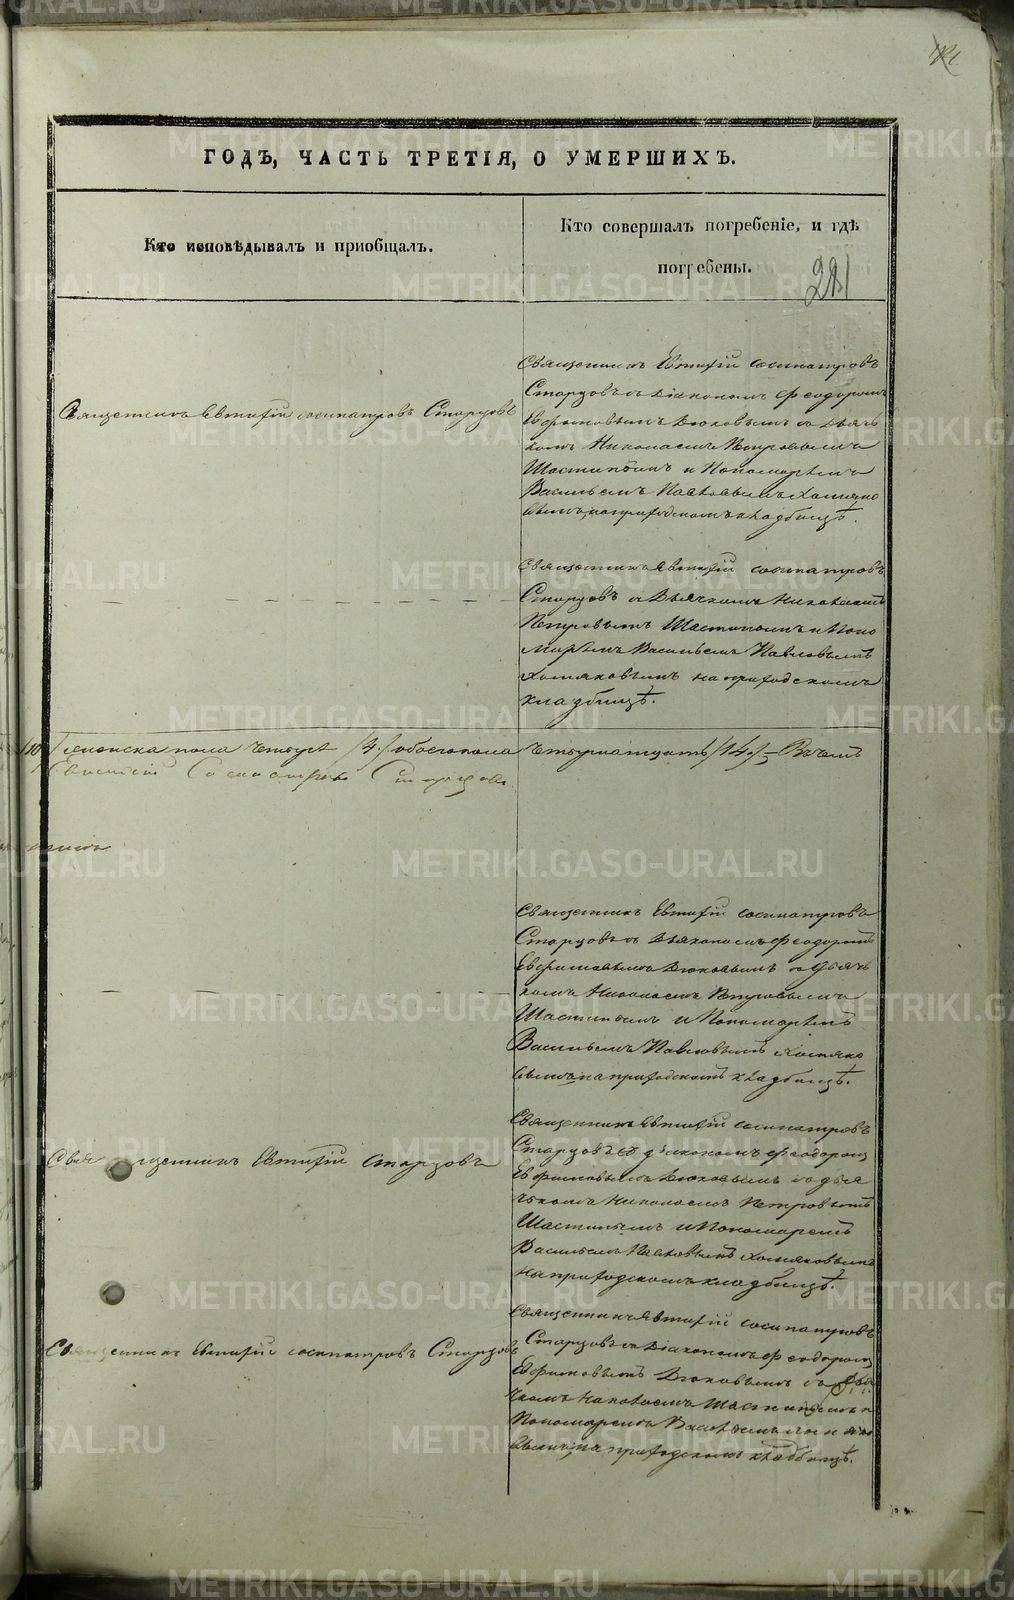 ГОДЪ, ЧАСТЬ ТРЕТІЯ, О УМЕРШИХЪ.
Кто исповѣдывалъ и пріобщалъ.
Кто совершалъ погребеніе, и гдѣ
погребены.
281
Священникъ Евтихій Сосипатровъ Старцовъ
Священникъ Евтихій Сосипатровъ
Старцовъ съ Діакономъ Феодоромъ
Евфимовымъ Дюковымъ съ Дьяч
комъ Николаемъ Петровымъ
Шастинымъ и Пономарѣмъ
Васильемъ Павловымъ Хомяко
вымъ, на приходскомъ кладбищѣ.
Священникъ Евтихій Сосипатровъ
Старцовъ съ Дьячкомъ Николаемъ
Петровымъ Шастинымъ и Поно
марѣмъ Васильемъ Павловымъ
Хомяковымъ на приходскомъ
кладбищѣ.
женска пола четыре /4./ обоего пола четырнатцать /14./ – Въ чемъ
Евтихій Сосипатровъ Старцовъ
Священникъ Евтихій Сосипатровъ
Старцовъ съ Діакономъ Феодоромъ
Евфимовымъ Дюковымъ съ Дьяч
комъ Николаемъ Петровымъ
Шастинымъ и Пономарѣмъ
Васильемъ Павловымъ Хомяко
вымъ на приходскомъ кладбищѣ.
Священникъ Евтихій Старцовъ
Священникъ Евтихій Сосипатровъ
Старцовъ съ діакономъ Феодоромъ
Евфимовымъ Дюковымъ съ дья
чкомъ Николаемъ Петровымъ
Шастинымъ и Пономаремъ
Васильемъ Павловымъ Хомяковымъ
на приходскомъ кладбищѣ.
Священникъ Евтихій Сосипатровъ Старцовъ
Священникъ Евтихій Сосипатровъ
Старцовъ съ Діакономъ Феодоромъ
Евфимовымъ Дюковымъ съ Дья
чкомъ Николаемъ Шастинымъ и
Пономаремъ Васильемъ
вымъ, на приходскомъ кладбищѣ.
METRIKI.GASO-URAL.RU